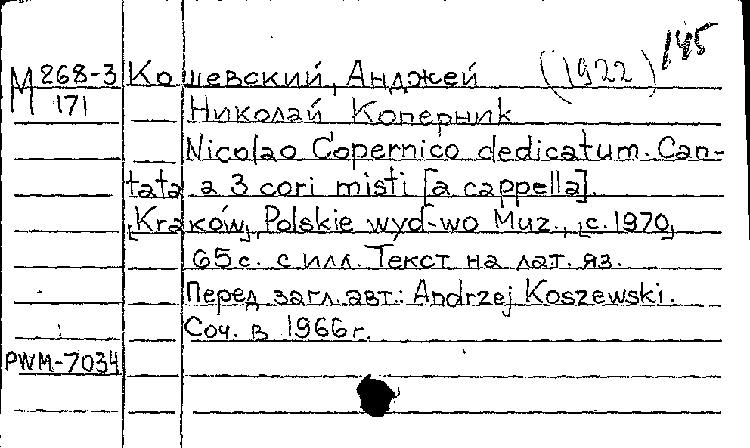 145
М 268-3 Кошевский, Анджей (1922)
171 Николай Коперник
Nicolao Copernico dedicatum. Can-
tata a 3 cori misti [a cappella].
[Kraków], Polskie wyd-wo Muz., [c. 1970]
65 с. с илл. Текст на лат. яз.
Перед загл. авт.: Andrzej Koszewski.
Соч. в 1966 г.
PWM-7034